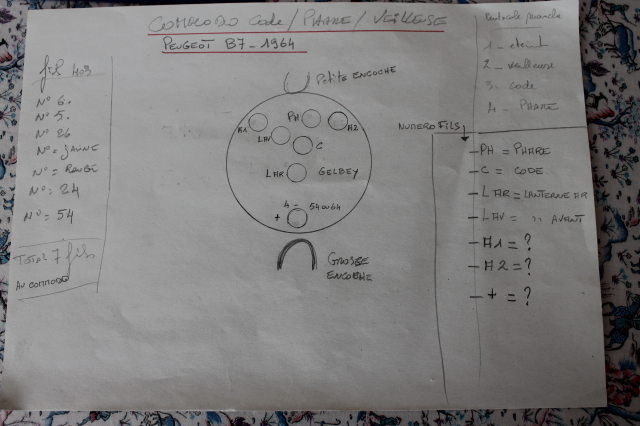 COMMODO CODE/PHARE/VEILLEUSE
PEUGEOT B7-1964
fils 403
N° 6.
N° 5.
N° 26
N° = JAUNE
N° = ROUGE
N° = 24
N° = 54
TOTAL 7 fils
AU COMMODO
Petite ENCOCHE
A1
PH
A2
LAV
C
LAR
GELBEY
4 - 54 ou 64
+
GROSSE
ENCOCHE
NUMERO FILS
1 - eteint
2 - veilleuse
3. code
4. PHARE
- PH = PHARE
- C = CODE
- LAR = LANTERNE AR
- LAV = " AVANT
- A1 = ?
- A2 = ?
- + = ?